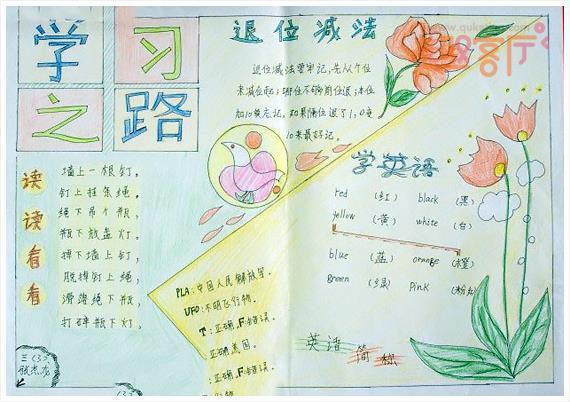 学习之路
退位减法
退位减法要牢记,先从个位
来减位起;哪位不够前位退,本位
加10莫忘记,如果隔位退了1,0变
10来最好记。
读读看看
墙上一根钉,
钉上挂条绳,
绳下吊个瓶,
瓶下放盏灯。
掉下墙上钉,
脱掉钉上绳,
滑落绳下瓶,
打碎瓶下灯,
学英语
red (红) black (黑
yellow (黄) white (白
blue (蓝) orange (橙
Green (绿) Pink (粉
PLA:中国人民解放军。
UFO:不明飞行物。
T:正确,F:错误。
:正确美国。
:正确,F:错误。
英语
简称
三(3)